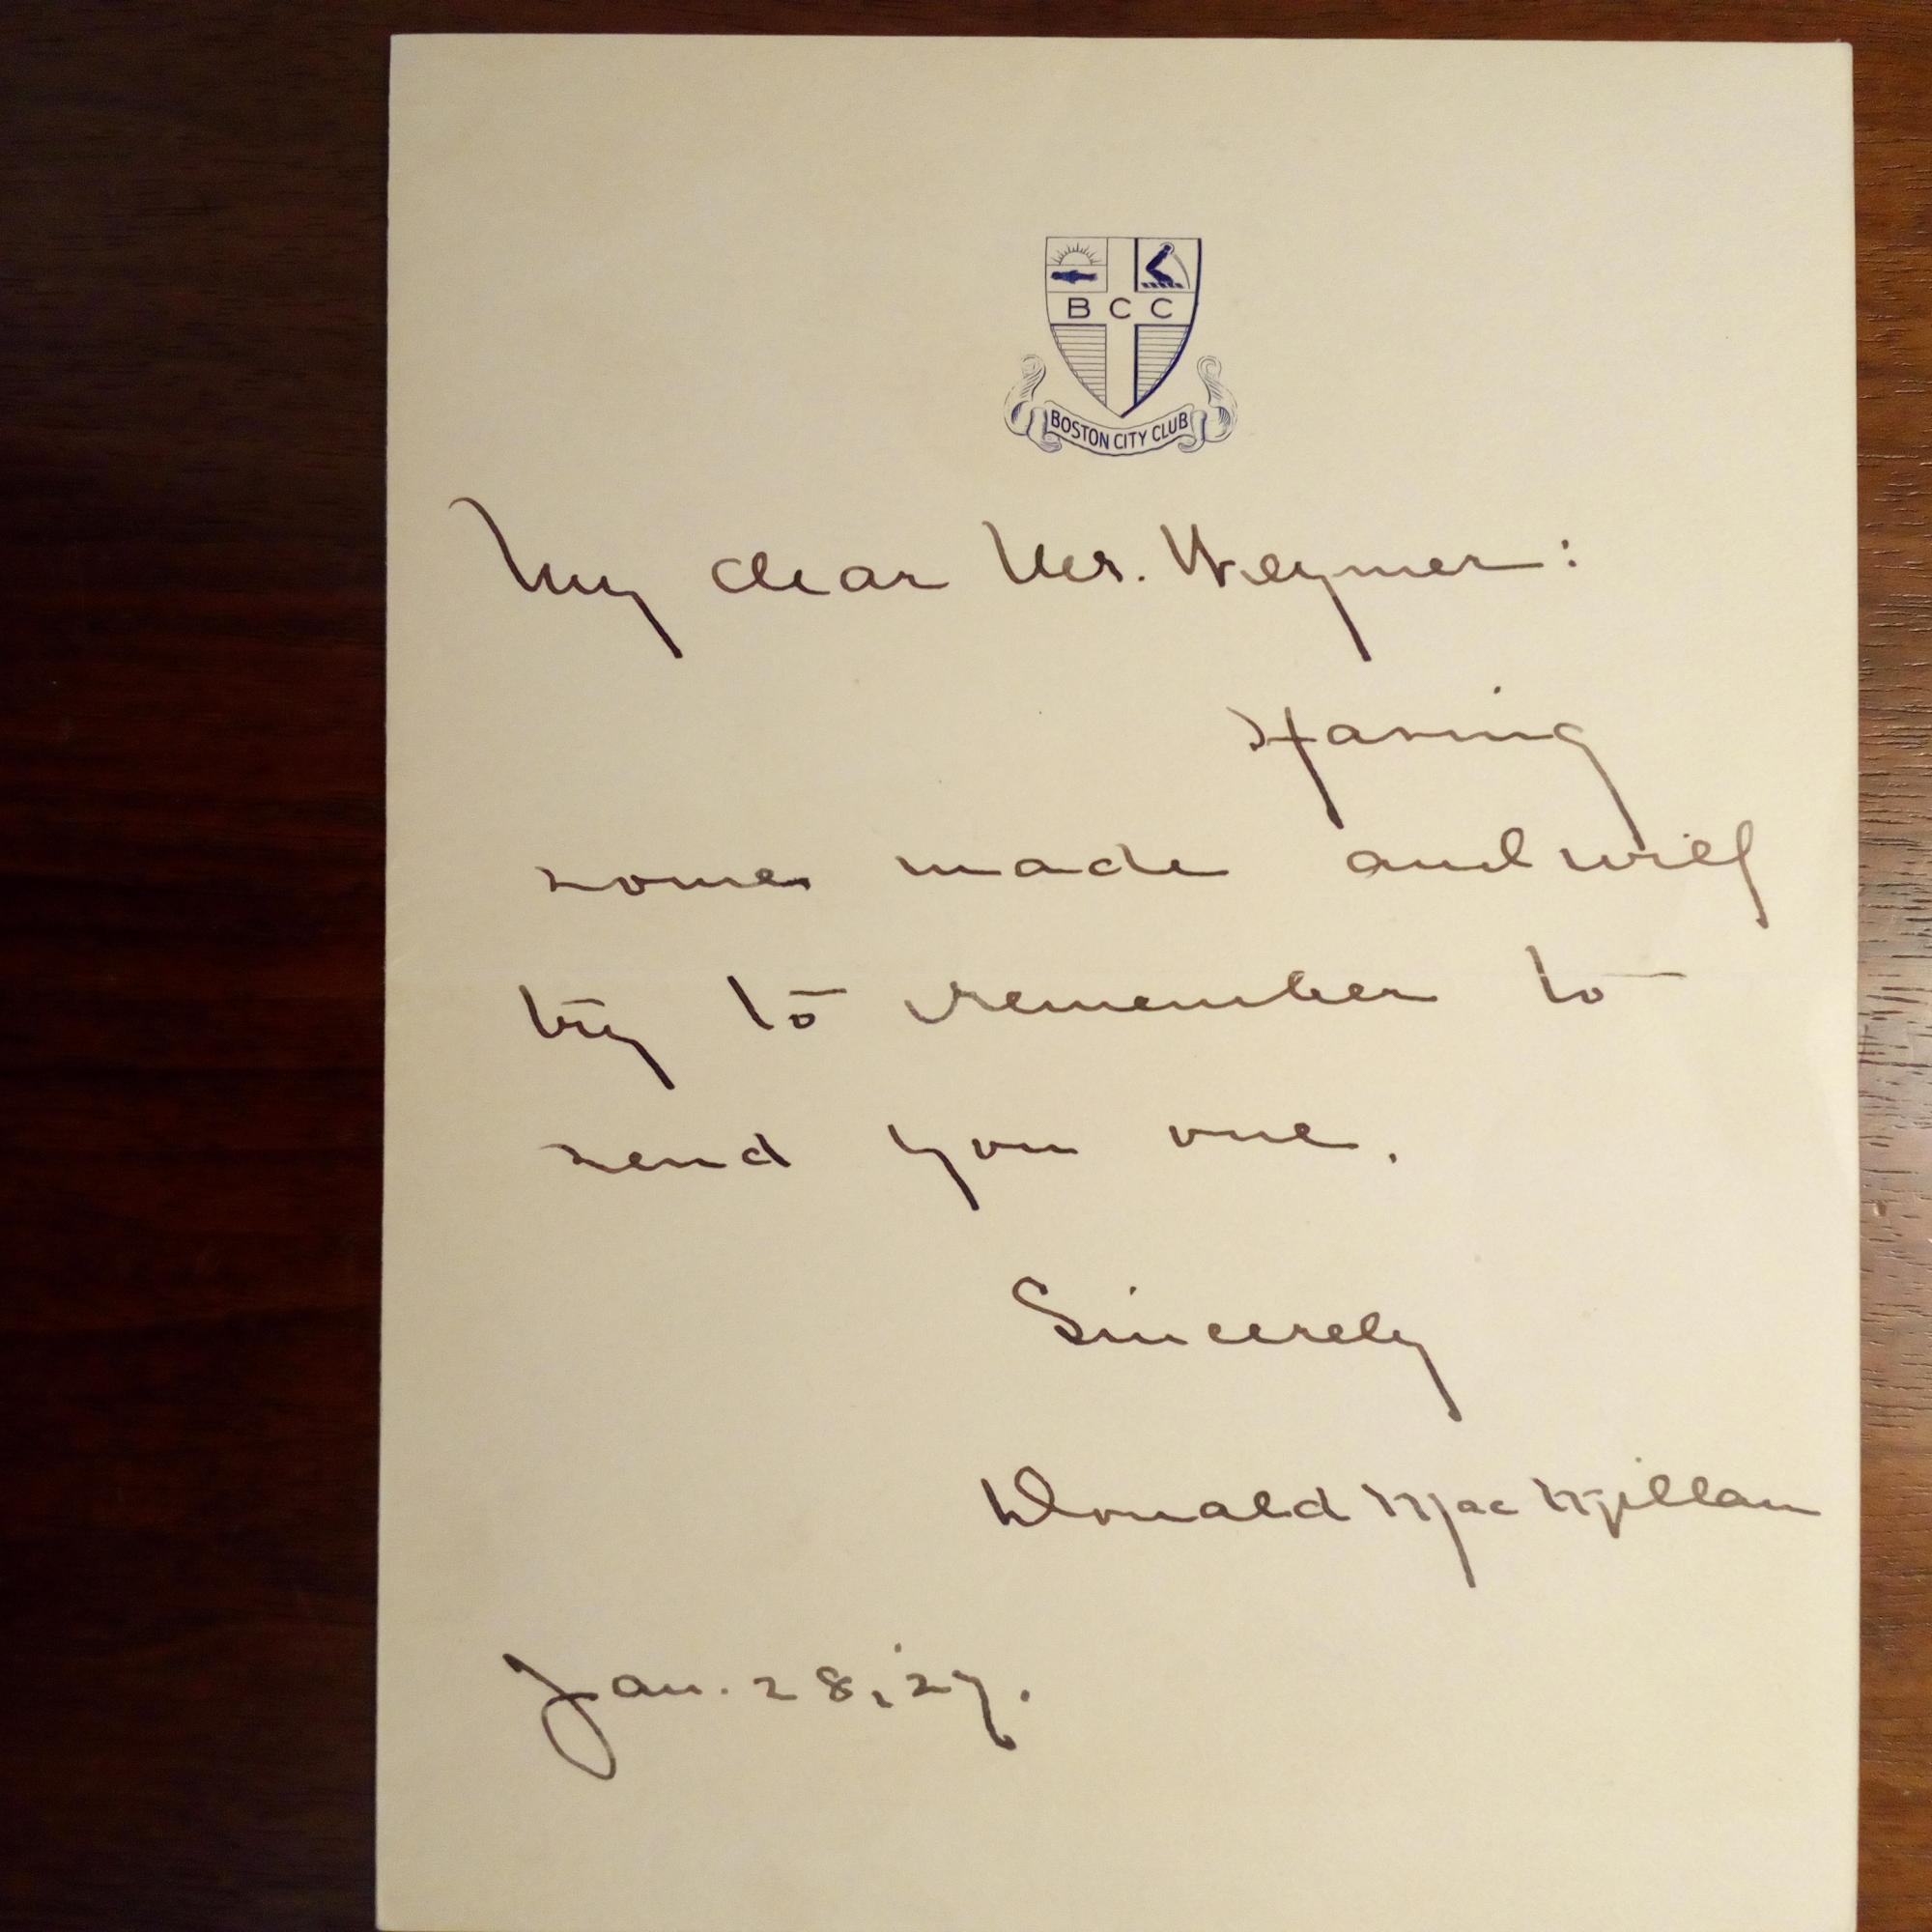 BCC
BOSTON CITY CLUB
My dear Mr. Weymer:
Having
some made and will
try to remember to
send you one.
Sincerely
Donald MacMillan
Jan. 28, '27.